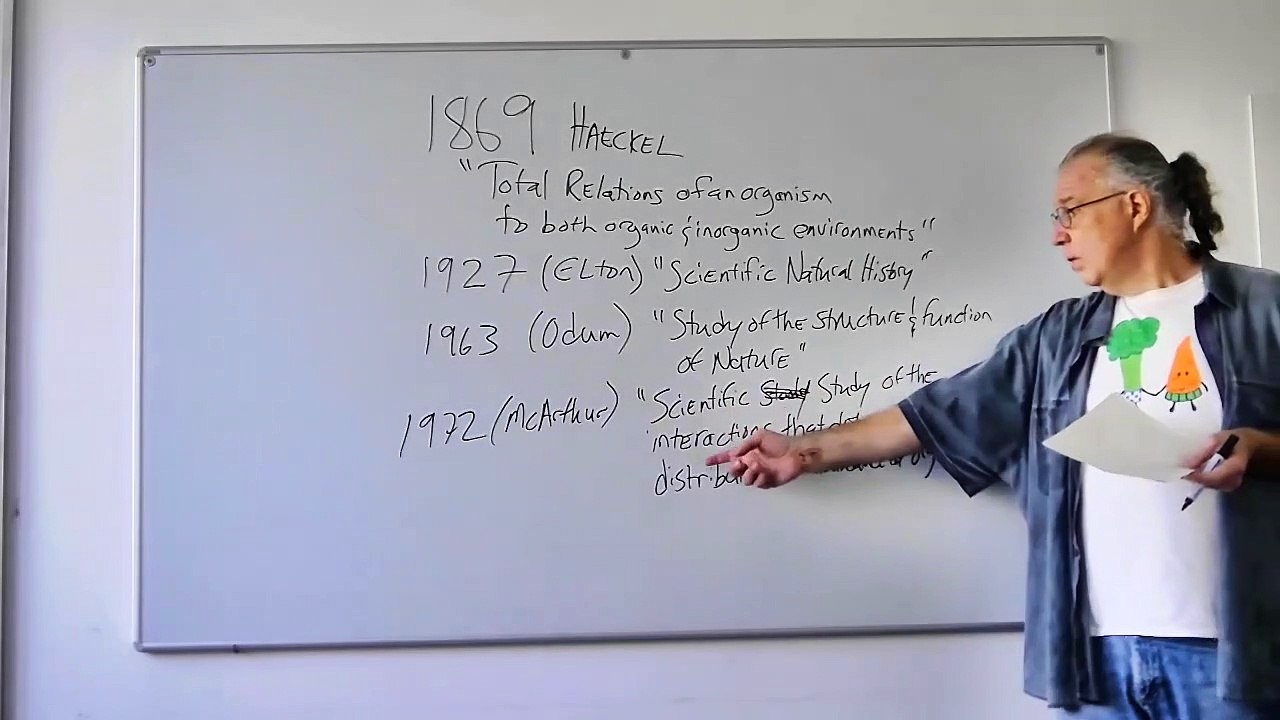 1869 HAECKEL
"Total Relations of an organism
to both organic & inorganic environments"
1927 (Elton) "Scientific Natural History"
1963 (Odum) "Study of the structure & function
of Nature"
1972 (McArthur) "Scientific Study of the
interactions that